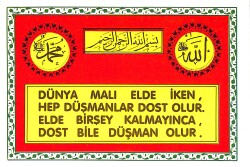 محمد
بسم الله الرحمن الرحيم
الله
DÜNYA MALI ELDE İKEN,
HEP DÜŞMANLAR DOST OLUR.
ELDE BİRŞEY KALMAYINCA,
DOST BİLE DÜŞMAN OLUR.